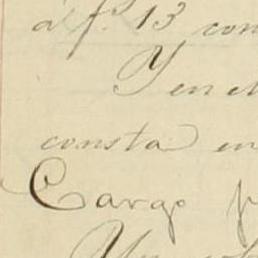 á f. 13 con
Y en el
consta en
Cargo p
Un